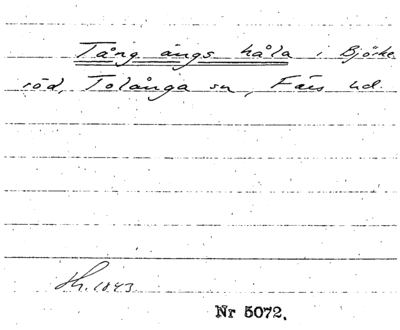 Tång ängs håla i Björke
röd, Tolånga sn, Färs hd.
Hh. 1843
Nr 5072.